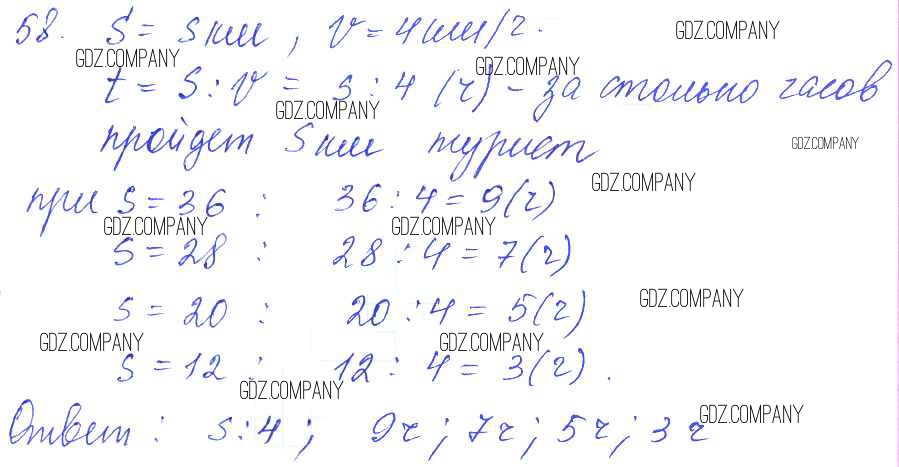 58. S = S км, v = 4 км/ч.
GDZ.COMPANY
GDZ.COMPANY
GDZ.COMPANY
t = S : v = s : 4 (ч) - за столько часов
GDZ.COMPANY
пройдет S км турист
GDZ.COMPANY
GDZ.COMPANY
при S = 36 : 36 : 4 = 9 (ч)
GDZ.COMPANY
GDZ.COMPANY
S = 28 : 28 : 4 = 7 (ч)
GDZ.COMPANY
S = 20 : 20 : 4 = 5 (ч)
GDZ.COMPANY
GDZ.COMPANY
S = 12 : 12 : 4 = 3 (ч).
GDZ.COMPANY
GDZ.COMPANY
Ответ : s : 4 ; 9 ч ; 7 ч ; 5 ч ; 3 ч